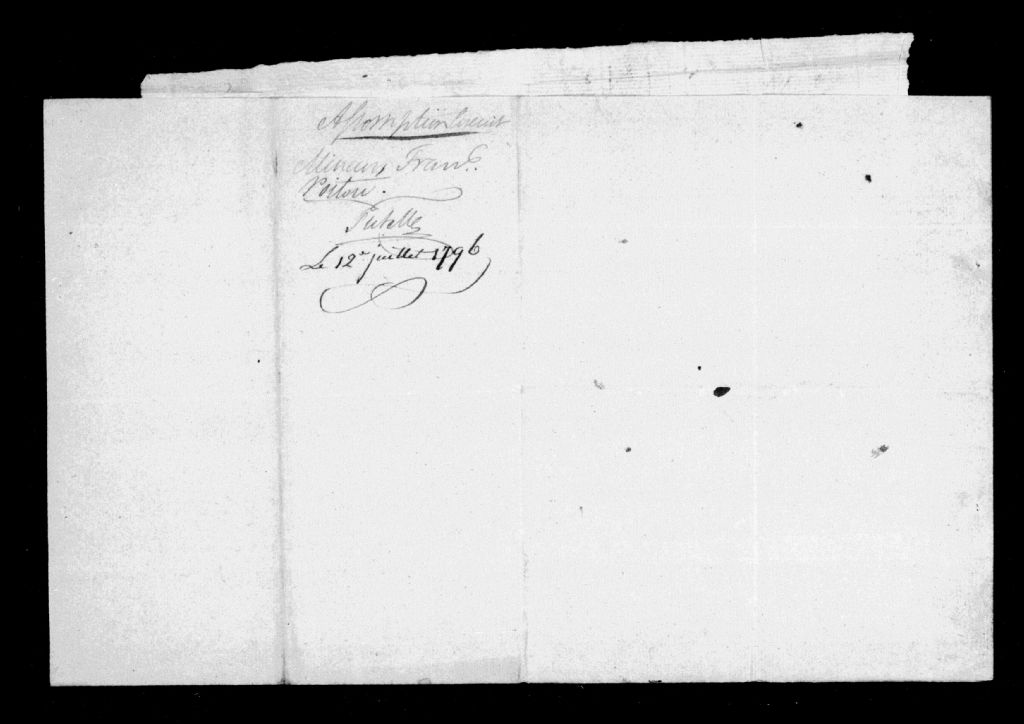 Assomption Circuit
Mineurs Frans.
Poitou.
Tutelle
Le 12e juillet 1796